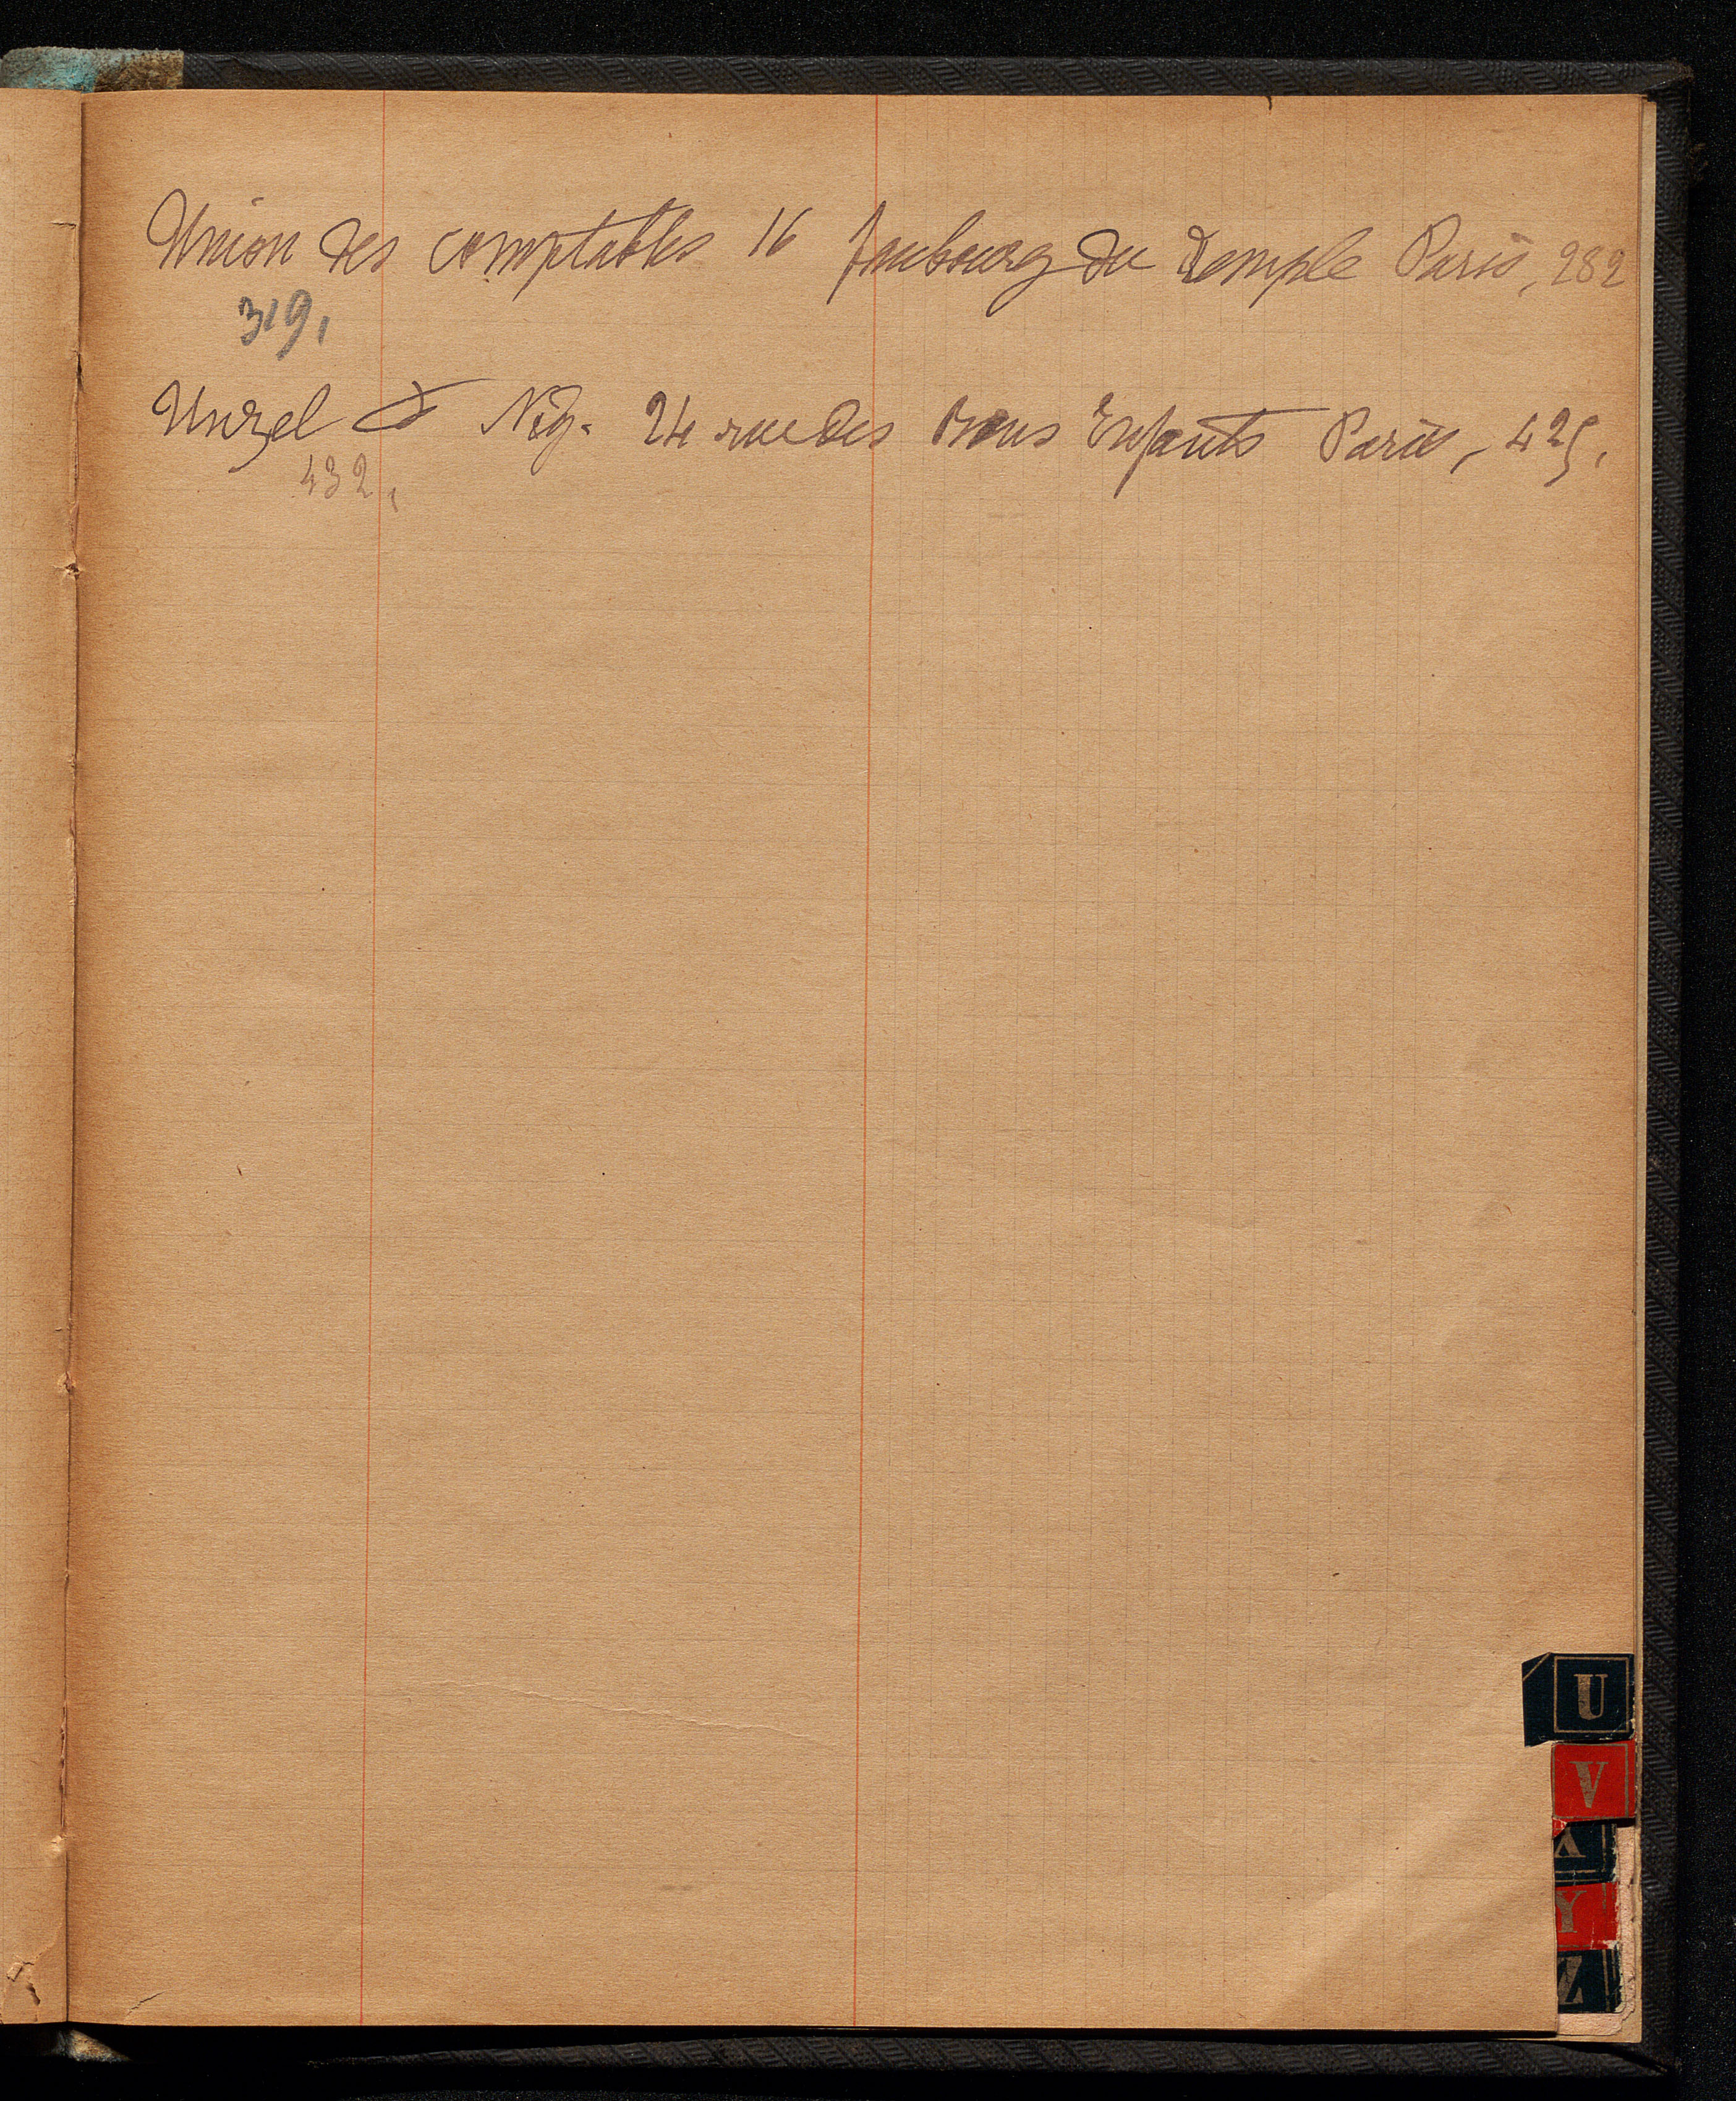 Union des comptables 16 faubourg du Temple Paris, 282
319,
Unzel & Nég. 24 rue des Bons Enfants Paris, 425,
432,
U
V
X
Y
Z